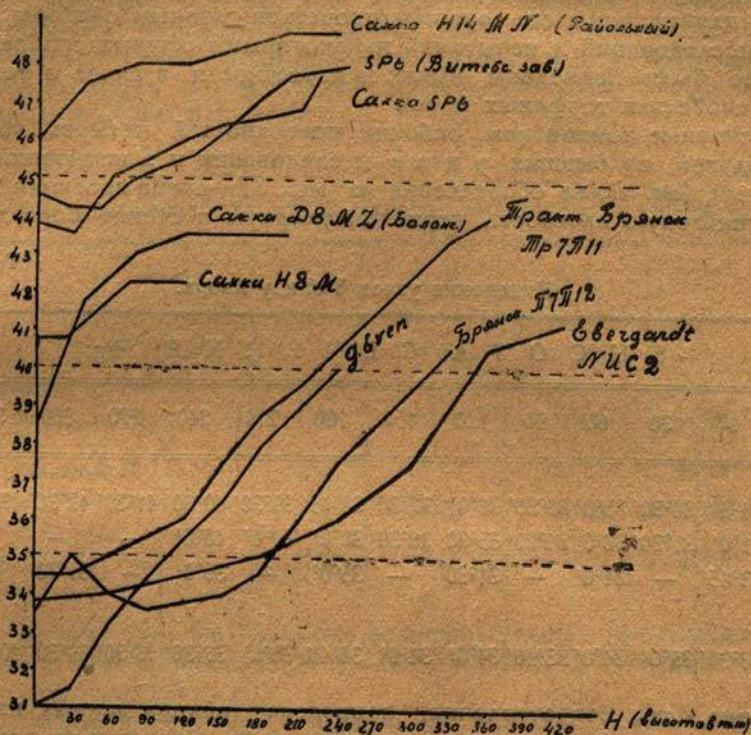 Сакко Н14 М N (Райольный)
SP6 (Витебс. зав.)
Сакко SP6
Сакки D8 MZ (Баланс.)
Тракт. Брянск
Тр7П11
Сакки Н8М
Брянск П7П12
Ebergardt
NUC2
48
47
46
45
44
43
42
41
40
39
38
37
36
35
34
33
32
31
30 60 90 120 150 180 210 240 270 300 330 360 390 420
H (высота в мм)